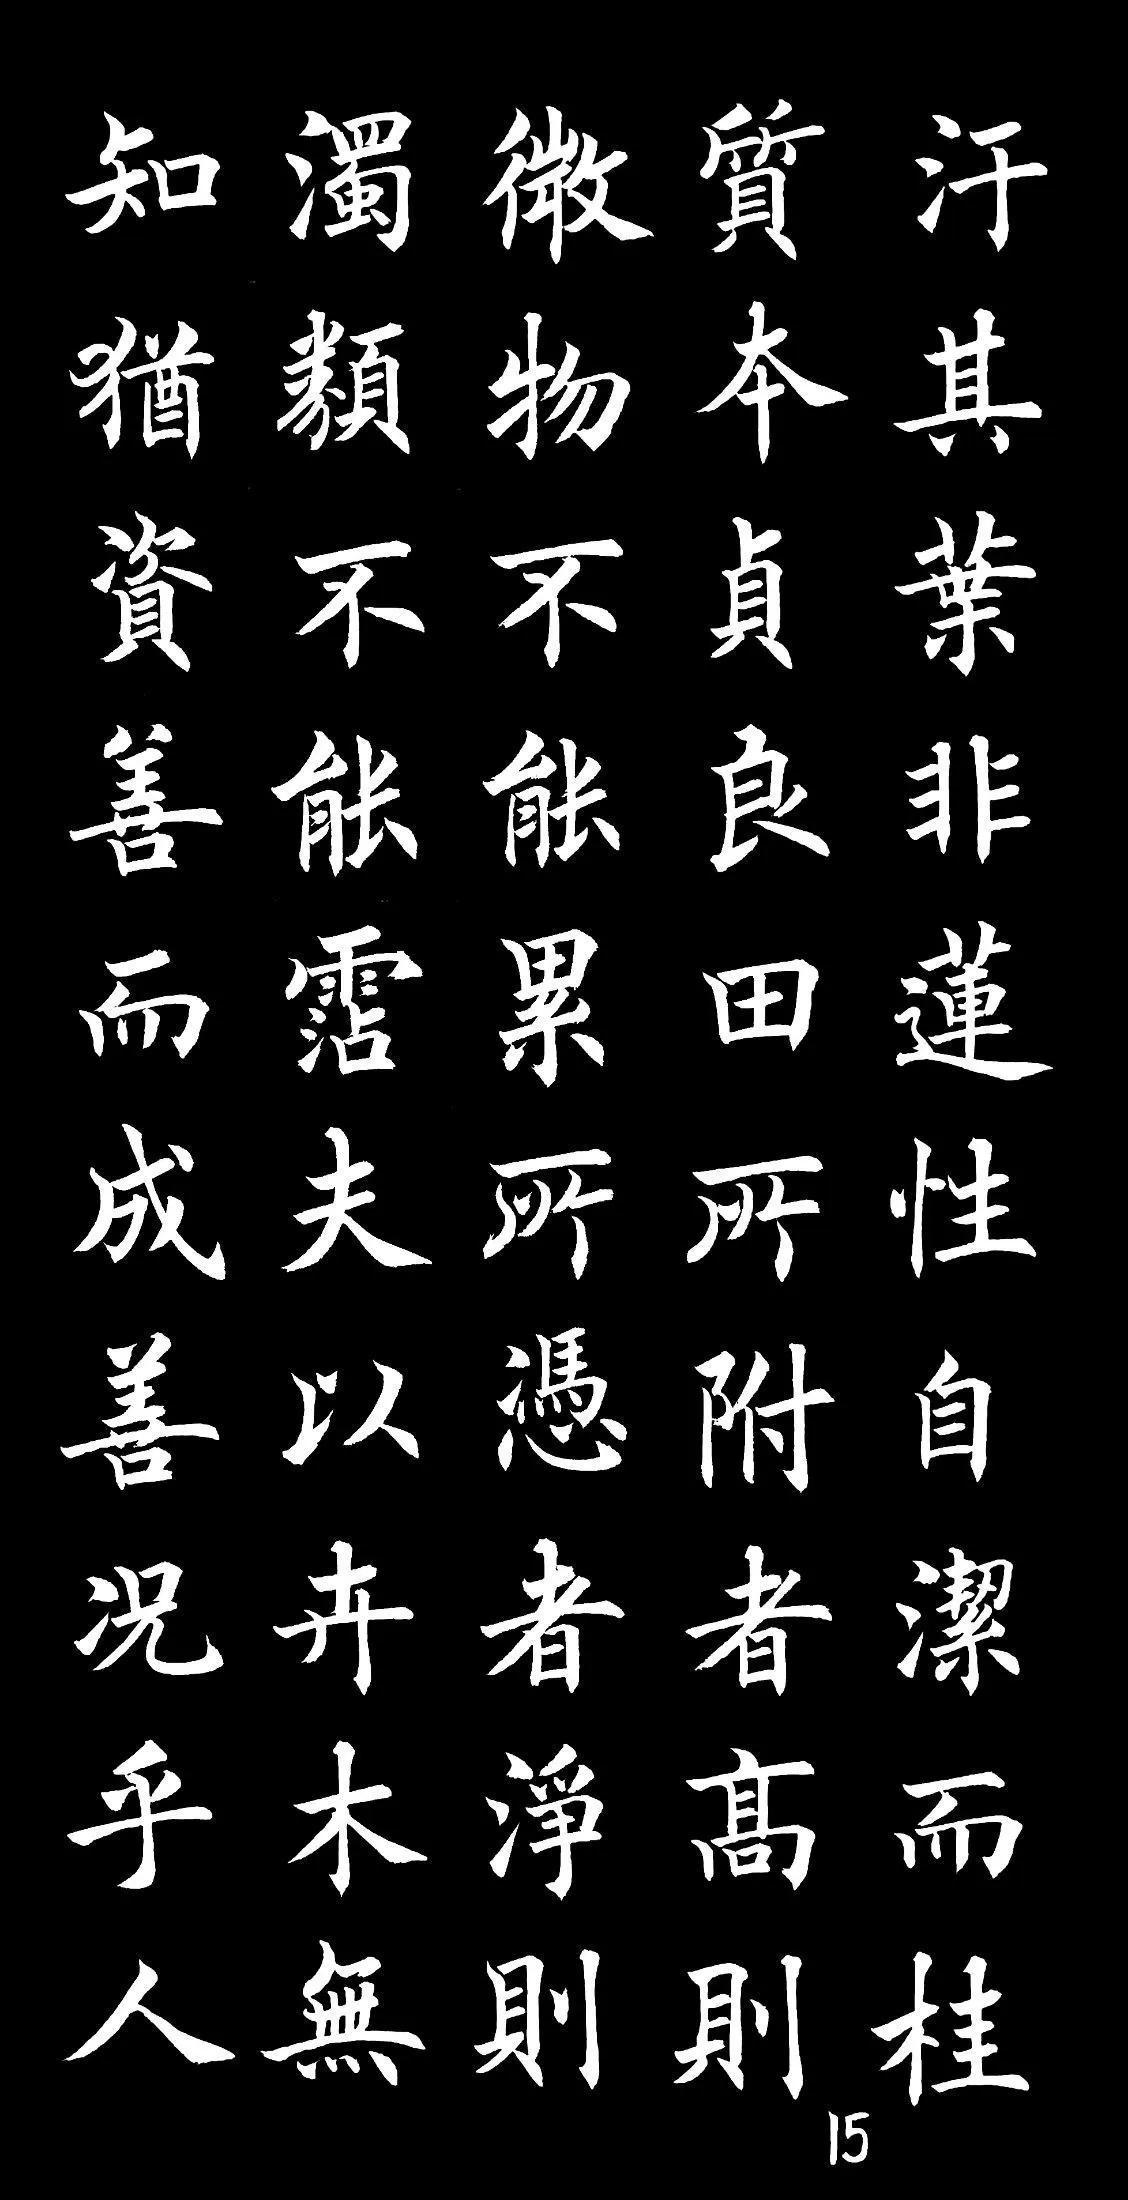 汙其葉非蓮性自潔而桂
質本貞良田所附者高則
微物不能累所憑者淨則
濁類不能霑夫以卉木無
知猶資善而成善況乎人
15